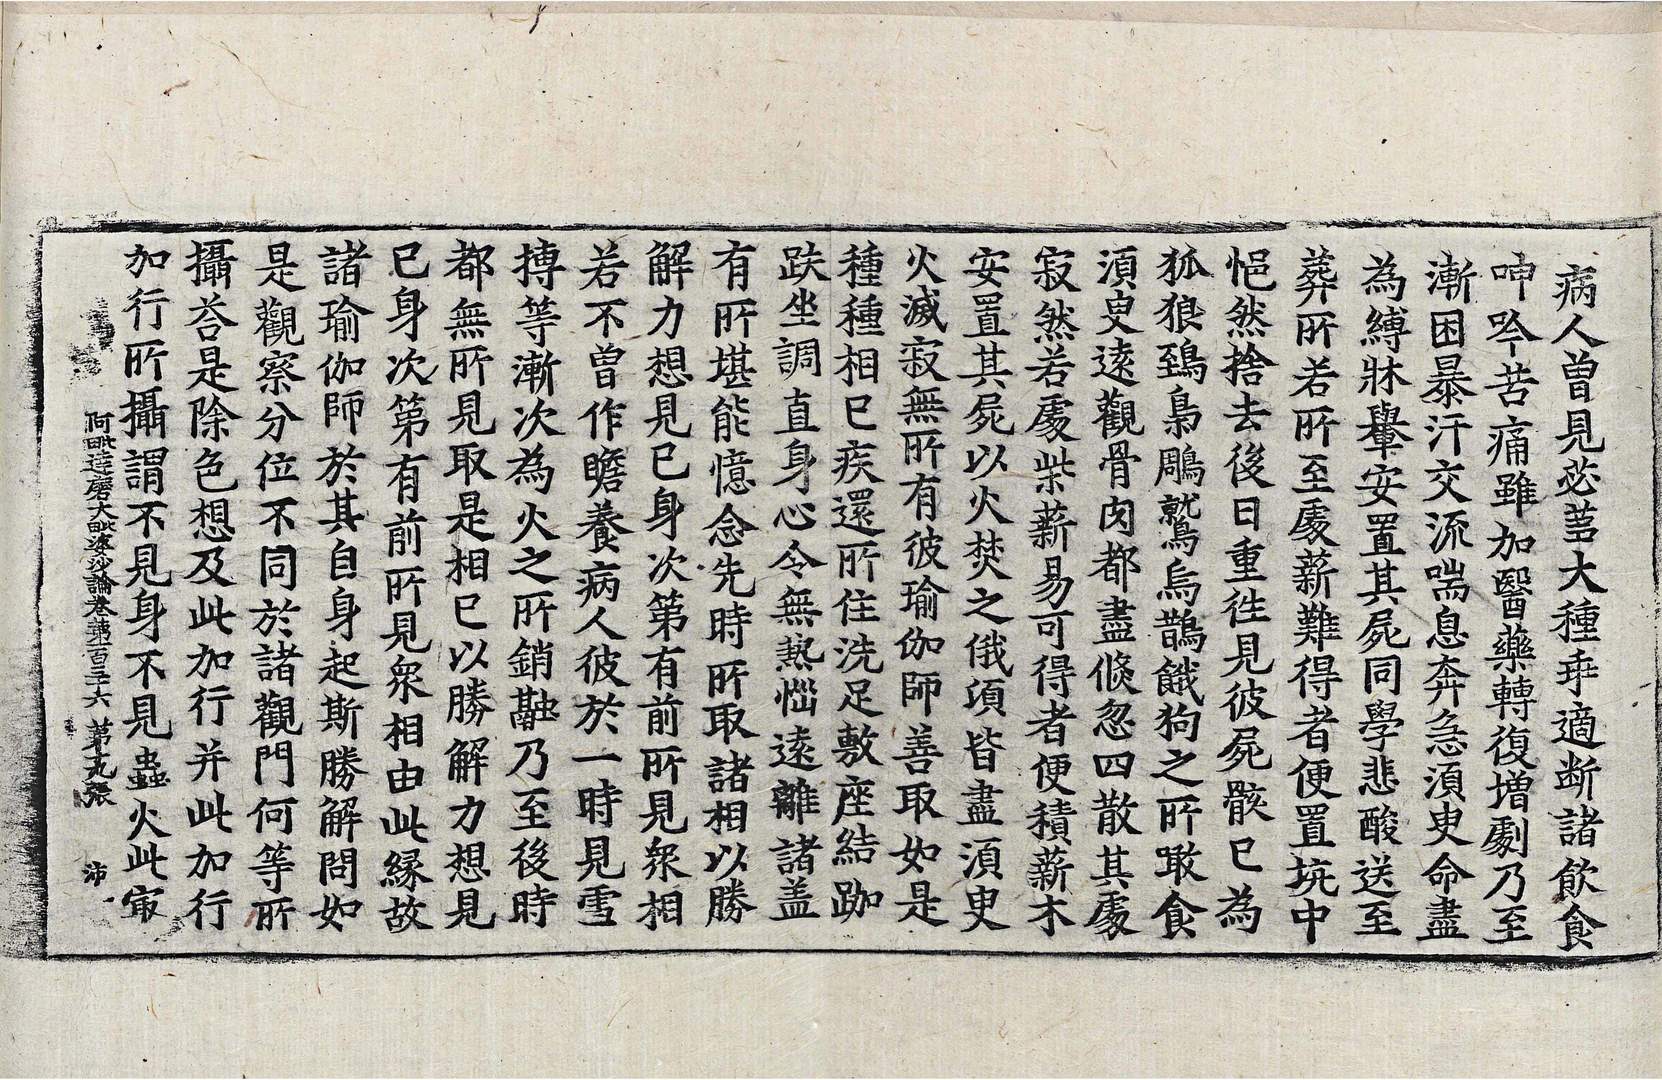 病人曾見苾芻大種乖適断諸飲食
呻吟苦痛雖加醫藥轉復增劇乃至
漸困暴汗交流喘息奔急湏臾命盡
為縛牀轝安置其屍同學悲酸送至
葬所若所至處薪難得者便置坑中
悒然捨去後日重往見彼屍骸已為
狐狼鵄梟鵰鷲烏鵲餓狗之所噉食
湏臾遠觀骨肉都盡倐忽四散其處
寂然若處柴薪易可得者便積薪木
安置其屍以火焚之俄湏皆盡湏臾
火滅寂無所有彼瑜伽師善取如是
種種相已疾還所住洗足敷座結跏
趺坐調直身心令無熱惱遠離諸盖
有所堪能憶念先時所取諸相以勝
解力想見己身次第有前所見衆相
若不曾作瞻養病人彼於一時見雪
摶等漸次為火之所銷融乃至後時
都無所見取是相已以勝解力想見
已身次第有前所見衆相由此緣故
諸瑜伽師於其自身起斯勝解問如
是觀察分位不同於諸觀門何等所
攝荅是除色想及此加行并此加行
加行所攝謂不見身不見蟲火此寂
阿毗達磨大毗婆沙論卷第一百三十六 第九張 沛